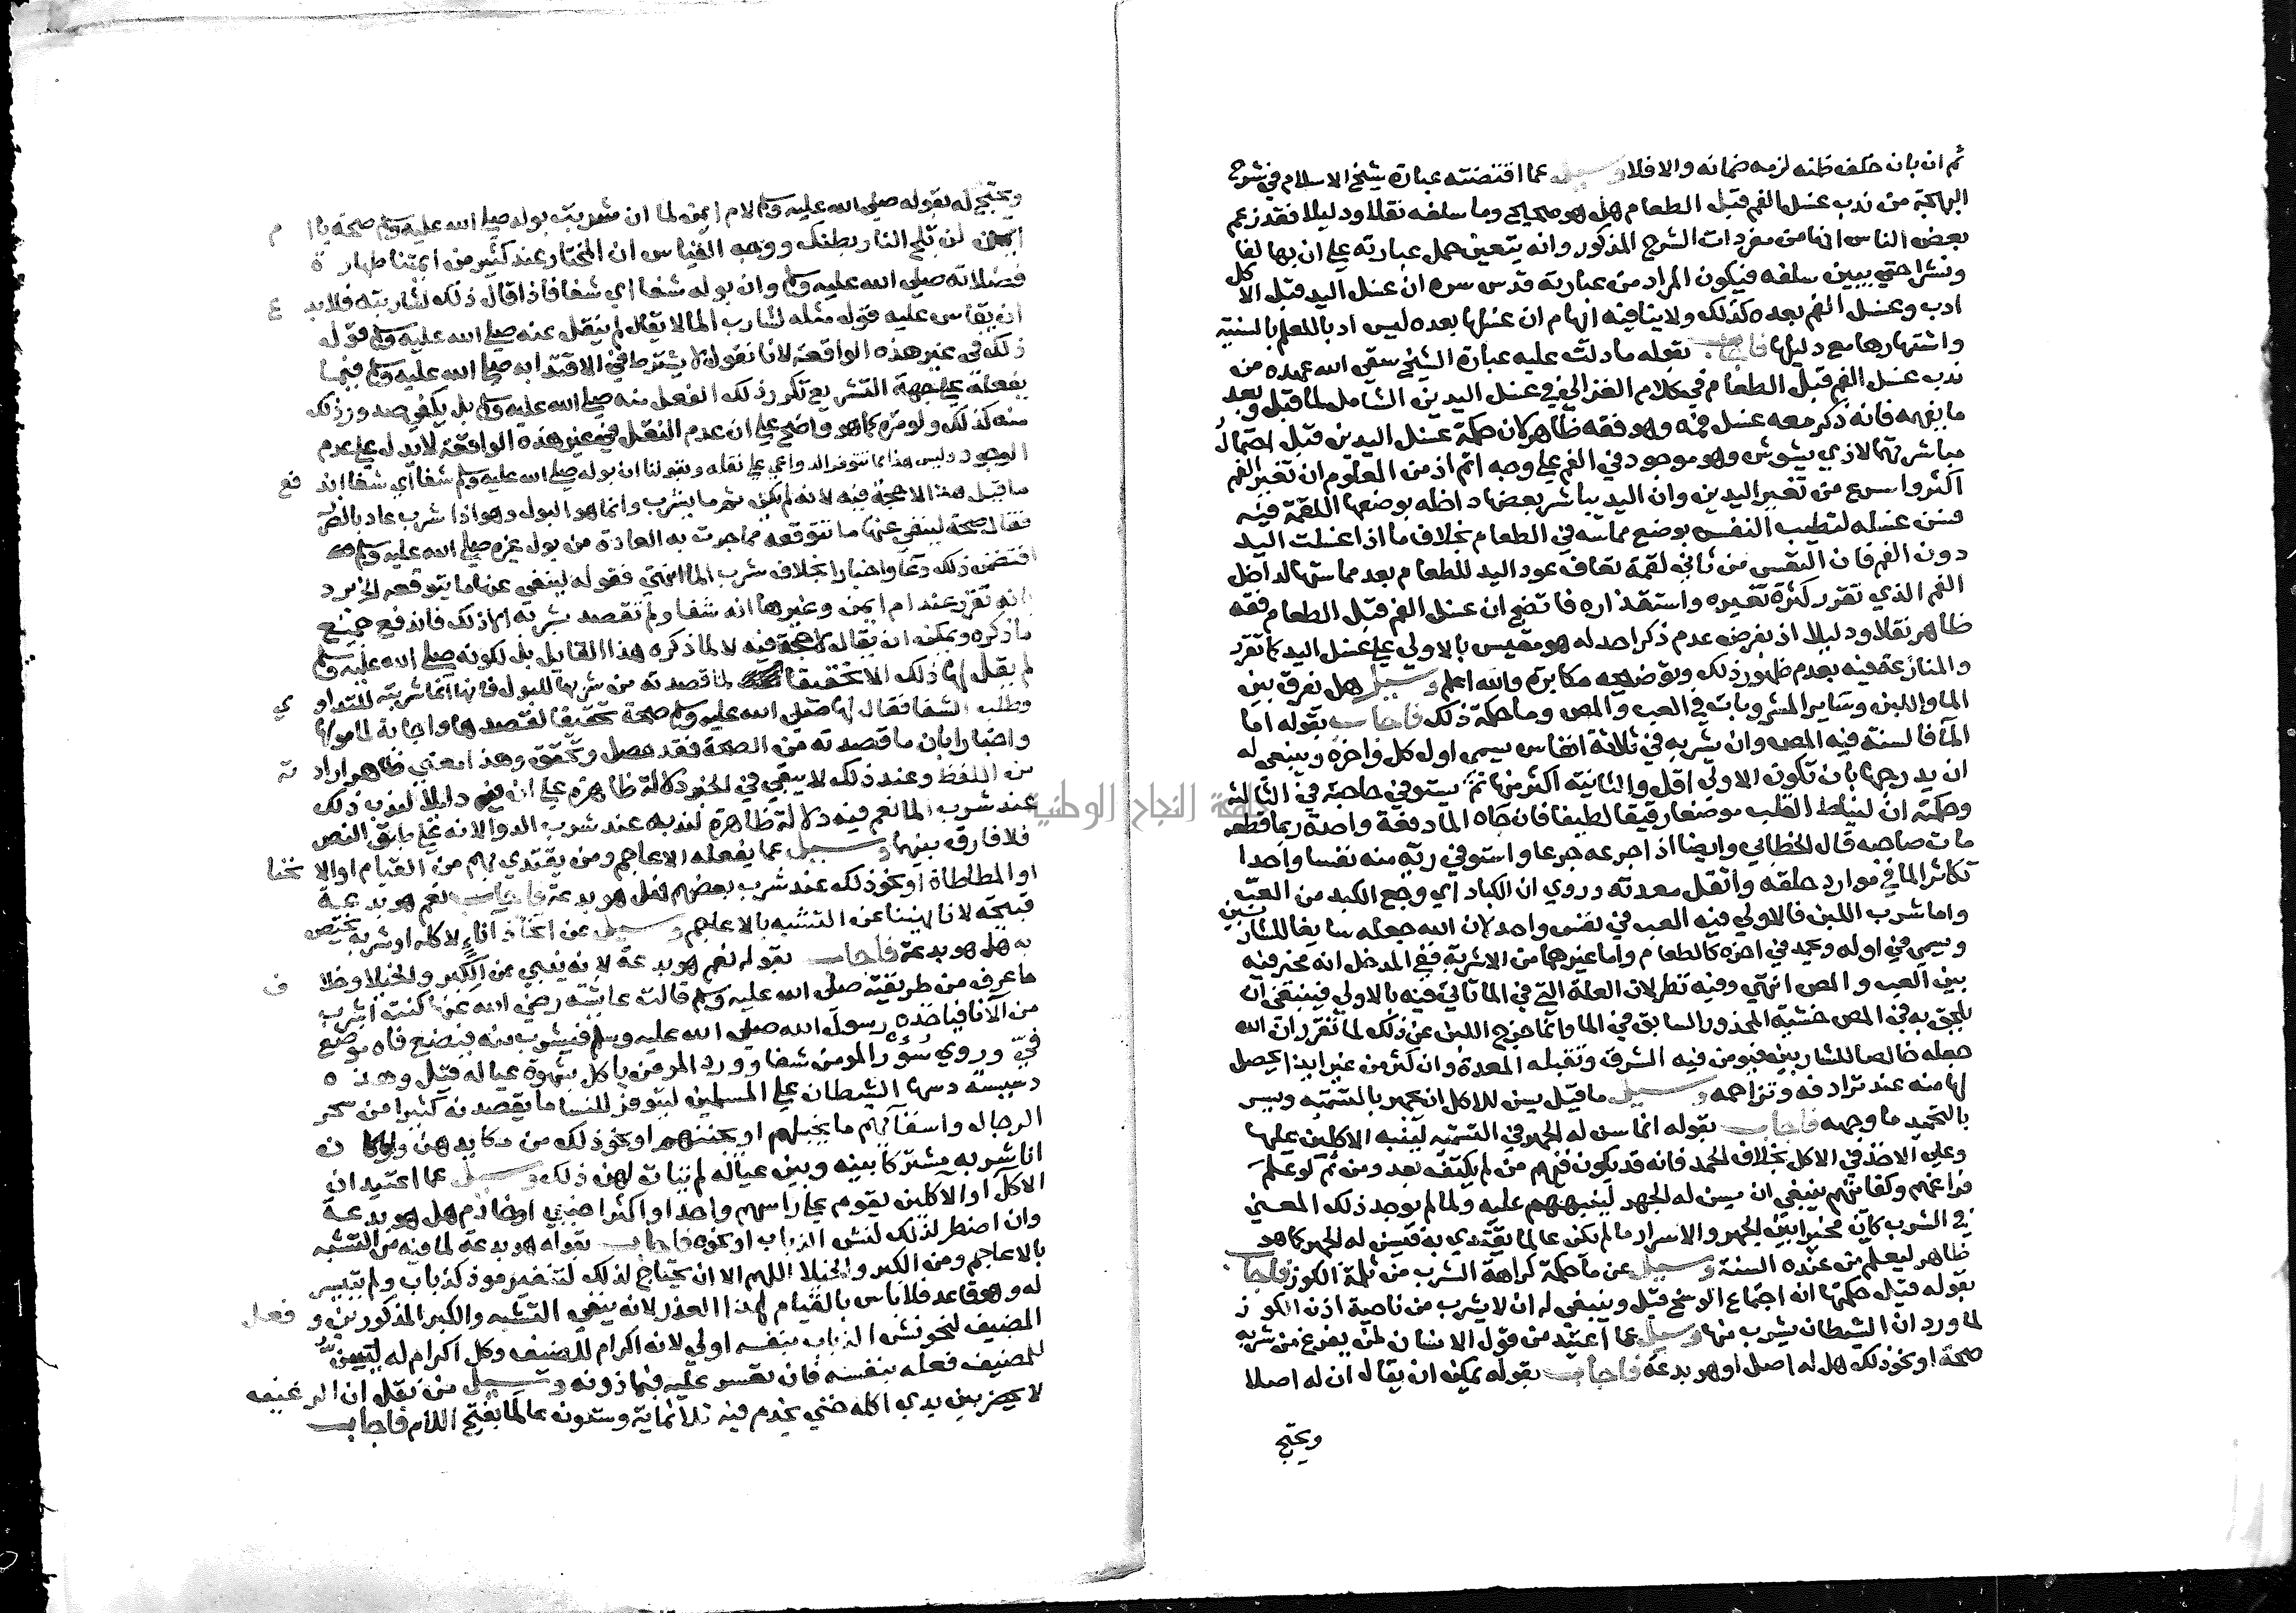 ثم ان بان خلف ظنه لزمه ضمانه والا فلا وسيل عما اقتضته عبارة شيخ الاسلام في شرح
البهجة من ندب غسل الفم قبل الطعام هل هو صحيح وما سلفه نقلا ودليلا فقد زعم
بعض الناس انها من مفردات الشرح المذكور وانه يتعين حمل عبارته علي ان بها لفا
ونشرا حتي يبين سلفه فيكون المراد من عبارته قدس سره ان غسل اليد قبل الاكل
ادب وغسل الفم بعده كذلك ولا ينافيه ايهام ان غسلها بعده ليس ادبا للعلم بالسنية
واشتهارها مع دليلها فاجاب بقوله ما دلت عليه عبارة الشيخ سقي الله عهده من
ندب غسل الفم قبل الطعام في كلام الغزالي في غسل اليدين الشامل لما قبل وبعد
ما يفهمه فانه ذكر معه غسل فمه وهو فقه ظاهر لان حكمة غسل اليدين قبل احتمال
مباشرتهما لاذي يشوش وهو موجود في الفم علي وجه اتم اذ من المعلوم ان تغير الفم
اكثر واسرع من تغير اليدين وان اليد يباشر بعضها داخله بوضعها اللقمة فيه
فسن غسله لتطيب النفس بوضع مماسه في الطعام بخلاف ما اذا غسلت اليد
دون الفم فان النفس من ثاني لقمة تعاف عود اليد للطعام بعد مماستها لداخل
الفم الذي تقرر كثرة تغيره واستقذاره فاتضح ان غسل الفم قبل الطعام فقه
ظاهر نقلا ودليلا اذ بفرض عدم ذكر احد له هو مقيس بالاولي علي غسل اليد كما تقرر
والمنازعة فيه بعدم ظهور ذلك وتوضيحه مكابرة والله اعلم وسيل هل نفرق بين
الماء واللبن وساير المشروبات في العب والمص وما حكمة ذلك فاجاب بقوله اما
الماء فالسنة فيه المص وان يشربه في ثلاثة انفاس يسمي اول كل واخره وينبغي له
ان يدرجها بان تكون الاولي اقل والثانية اكثر منها ثم يستوفي حاجته في الثالثة
وحكمته ان لنياط القلب موضعا رقيقا لطيفا فان جاه الما دفعة واحدة ربما قطعه
مات صاحبه قال الخطابي وايضا اذا جرعه جرعا واستوفي ريه منه نفسا واحدا
تكاثر الما في موارد حلقه واثقل معدته وروي ان الكباد اي وجع الكبد من العب
واما شرب اللبن فالاولي فيه العب في نفس واحد لان الله جعله سايغا للشاربين
ويسمي في اوله ويحمد في اخره كالطعام واما غيرهما من الاشربة ففي المدخل انه مخير فيه
بين العب والمص انتهي وفيه نظر لان العلة التي في الما تاتي فيه بالاولي فينبغي ان
يلحق به في المص خشية المحذور السابق في الما وانما خرج اللبن عن ذلك لما تقرر ان الله
جعله خالصا للشاربين فيومن فيه الشرق وتقبله المعدة وان كثر من غير ايذا يحصل
لها منه عند ترادفه وتزاحمه وسيل ما قيل يسن للاكل ان يجهر بالتسمية ويسر
بالتحميد ما وجهه فاجاب بقوله انما سن له الجهر في التسمية لينبه الاكلين عليها
وعلي الاخذ في الاكل بخلاف الحمد فانه قد يكون فيهم من لم يكتف بعد ومن ثم لو علم
فراغهم وكفايتهم ينبغي ان يسن له الجهر لينبههم عليه ولما لم يوجد ذلك المعني
في الشرب كان مخيرا بين الجهر والاسرار ما لم يكن عالما يقتدي به فيسن له الجهر كما هو
ظاهر ليعلم من عنده السنة وسيل عن ما حكمة كراهة الشرب من ثلمة الكوز فاجاب
بقوله قيل حكمتها انه اجتماع الوسخ قيل وينبغي له ان لا يشرب من ناحية اذن الكوز
لما ورد ان الشيطان يشرب منها وسيل عما اعتيد من قول الانسان لمن يفرغ من شربه
صحة او نحو ذلك هل له اصل او هو بدعة فاجاب بقوله يمكن ان يقال ان له اصلا
ويحتج
ويحتج له بقوله صلي الله عليه وسلم لام ايمن لما ان شربت بوله صلي الله عليه وسلم صحة يا ام
ايمن لن تلج النار بطنك ووجه القياس ان المختار عند كثير من ايمتنا طهارة
فضلاته صلي الله عليه وسلم وان بوله شفا اي شفا فاذا قال ذلك لشاربته فلا بدع
ان يقاس عليه قوله مثله لشارب الما لا يقال لم ينقل عنه صلي الله عليه وسلم قوله
ذلك في غير هذه الواقعة لانا نقول لا يشترط في الاقتدا به صلي الله عليه وسلم فيما
يفعله علي جهة التشريع تكرر ذلك الفعل منه صلي الله عليه وسلم بل يكفي صدور ذلك
منه كذلك ولو مرة كما هو واضح علي ان عدم النقل في غير هذه الواقعة لا يدل علي عدم
الوجود وليس هذا مما تتوفر الدواعي علي نقله وبقولنا ان بوله صلي الله عليه وسلم شفا اي شفا اندفع
ما قيل هذا لا حجة فيه لانه لم يكن ثم ما يشرب وانما هو البول وهو اذا شرب عاد بالضر
فقال صحة لينفي عنها ما تتوقعه مما جرت به العادة من بول غيره صلي الله عليه وسلم
فتضمن ذلك دعا واخبارا بخلاف شرب الما انتهي فقوله لينفي عنها ما يتوقعه الخ يرد
بانه تقرر عند ام ايمن وغيرها انه شفا ولم تقصد بشربه الا ذلك فاندفع جميع
ما ذكره ويمكن ان يقال لا حجة فيه لا لما ذكره هذا القايل بل لكونه صلي الله عليه وسلم
لم يقل لها ذلك الا تحقيقا لما قصدته من شربها للبول فانها انما شربته للتداوي
وطلب الشفا فقال لها صلي الله عليه وسلم صحة تحقيقا لقصدها واجابة لمامولها
واخبارا بان ما قصدته من الصحة فقد حصل وتحقق وهذا معني ظاهر ارادته
من اللفظ وعند ذلك لا يبقي في الخبر دلالة ظاهرة علي ان فيه دليلا لندب ذلك
عند شرب الما نعم فيه دلالة ظاهرة لندبه عند شرب الدوا لانه علي طابق النص
فلا فارق بينهما وسيل عما يفعله الاعاجم ومن يقتدي بهم من القيام او الانحنا
او المطاطاة او نحو ذلك عند شرب بعضهم هل هو بدعة فاجاب نعم هو بدعة
قبيحة لانا نهينا عن التشبه بالاعاجم وسيل عن اتخاذ اناء لاكله او شربه يختص
به هل هو بدعة فاجاب بقوله نعم هو بدعة لانه ينبي عن الكبر والخيلا وخلاف
ما عرف من طريقته صلي الله عليه وسلم قالت عايشة رضي الله عنها كنت اشرب
من الانا فياخذه رسول الله صلي الله عليه وسلم فيشرب منه فيضع فاه موضع
في وروي سؤر المومن شفا وورد المومن ياكل بشهوة عياله قيل وهذه
دسيسة دسها الشيطان علي المسلمين ليتوفر للنسا ما يقصدنه كثيرا من سحر
الرجال واسقآئهم ما يخبلهم او يجننهم او نحو ذلك من مكايدهن ولو كان
انا شربه مشتركا بينه وبين عياله لم يتات لهن ذلك وسيل عما اعتيد ان
الاكل او الاكلين يقوم علي راسهم واحد او اكثر اجنبي او خادم هل هو بدعة
وان اضطر لذلك لنش الذباب او نحوه فاجاب بقوله هو بدعة لما فيه من التشبه
بالاعاجم ومن الكبر والخيلا اللهم الا ان يحتاج لذلك لتنفير موذ كذباب ولم يتيسر
له وهو قاعد فلا باس بالقيام لهذا العذر لانه ينفي التشبه والكبر المذكورين وفعل
المضيف لنحو نش الذباب بنفسه اولي لانه اكرام للضيف وكل اكرام له يسن
للمضيف فعله بنفسه فان تعسر عليه فبماذونه وسيل من نقل ان الرغيف
لا يحضر بين يدي اكله حتي يخدم فيه ثلاثماية وستون عالما بفتح اللام فاجاب
جامعة النجاح الوطنية